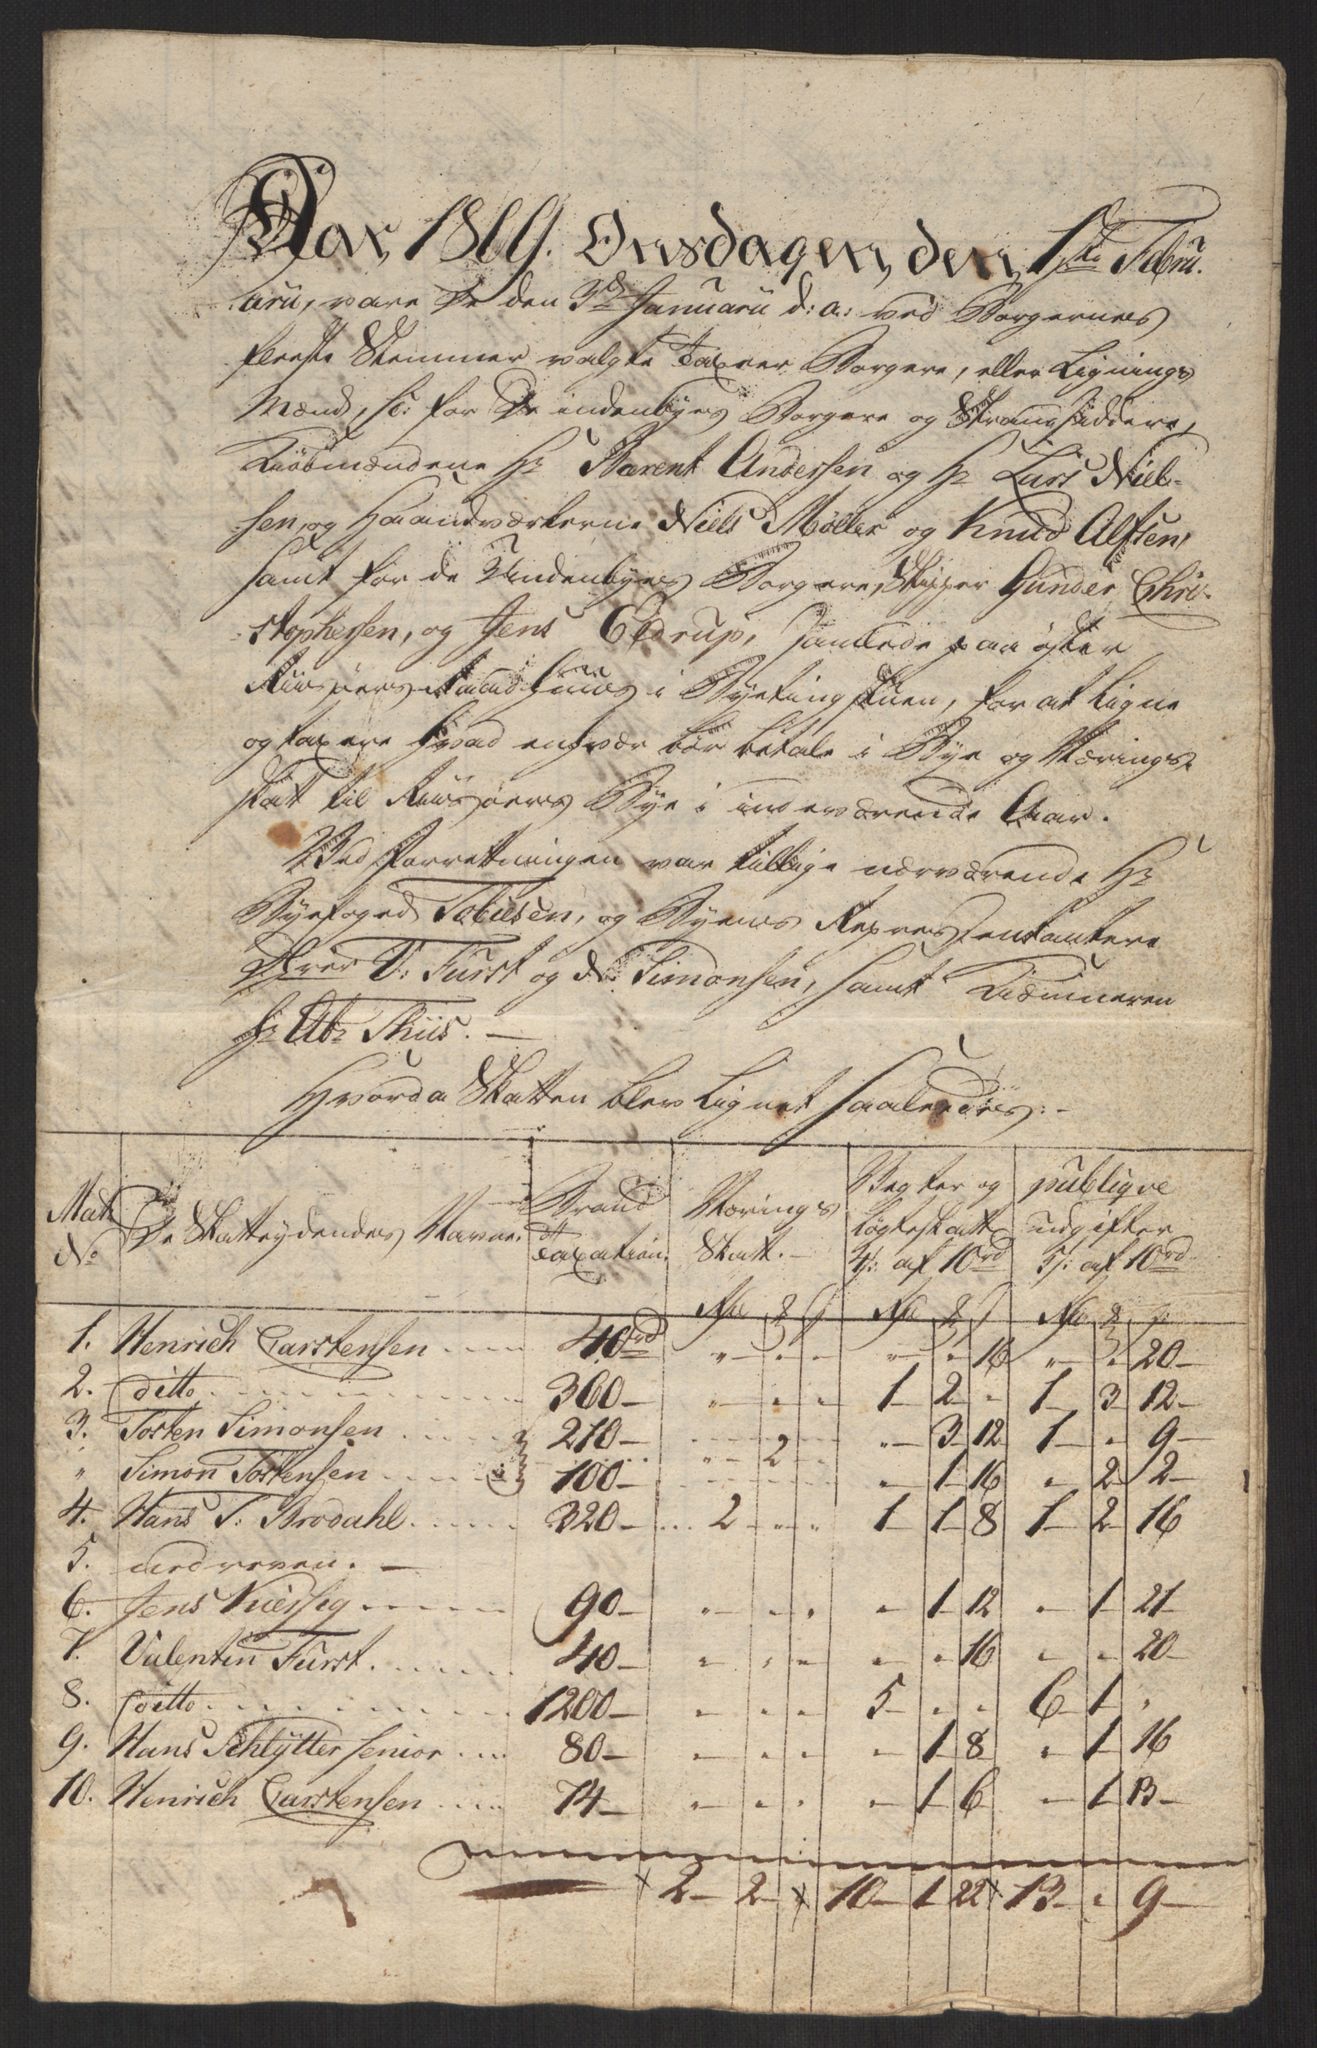 Aar, 1809. Onsdagen, den, 1ste Febru-
arii, vare De den 3de Januarii d: a: ved Borgernes
fleeste Stemmer valgte Taxeer Borgere, eller Lignings
Mænd, sc: for De indenbyes Borgere og Strandsiddere,
Kiøbmændene Hr Barent Andersen og Hr Lars Niel-
sen, og Haandværkerne Niels Møller og Knud Alfsen,
samt for de Udenbyes Borgere, Skipper Gunder Chri-
stophersen, og Jens Edrup, samlede paa øster
Riisøers Raadhuus i Byetingstuen, for at ligne
og taxere hvad enhver bør betale i Bye og Nærings-
skat til Riisøers Bye i inderværende Aar.
Ved Forretningen var tillige nærværende Hr
Byefoged Tobiesen, og Byens Repræsentantere
Hrer V: Fürst og Simonsen, samt Kiæmneren
Hr Abr Thiis. —
Hvorda Skatten blev lignet saaledes:-
Mat No | De Skatteydendes Navne. | Brand Taxation. | Nærings Skatt.- | Vægter og Løgteskatt 4s: af 10rd | publiqve udgifter 5s: af 10rd
1. Henrich Carstensen . . . 40rd " " " " " 16 " " 20
2. ditto . . . 360 " " " 1 2 " 1 3 12
3. Torsten Simonsen . . . 210 " 2 " " 3 12 1 " 9
" Simon Torstensen . . . 100 " 1 16 " 2 2
4. Hans T: Brodahl . . . 320 2 " " 1 1 8 1 2 16
5. udreven. —
6. Jens Kiersig . . . 90 " " " " 1 12 " 1 21
7. Valentin Fürst . . . 40 " " " " " 16 " " 20
8. ditto . . . 1200 " " " 5 " " 6 1 "
9. Hans Schlytter senior . . . 80 " " " " 1 8 " 1 16
10. Henrich Carstensen . . . 74 " " " " 1 6 " 1 13
2 2 " 10 1 22 13 " 9